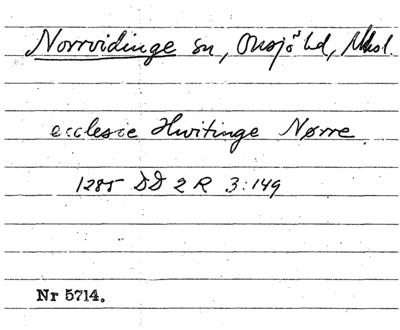 Norrvidinge sn, Onsjö hd, Mhsl.
ecclesie Hwitinge Nørre
1285 DD 2 R 3:149
Nr 5714.